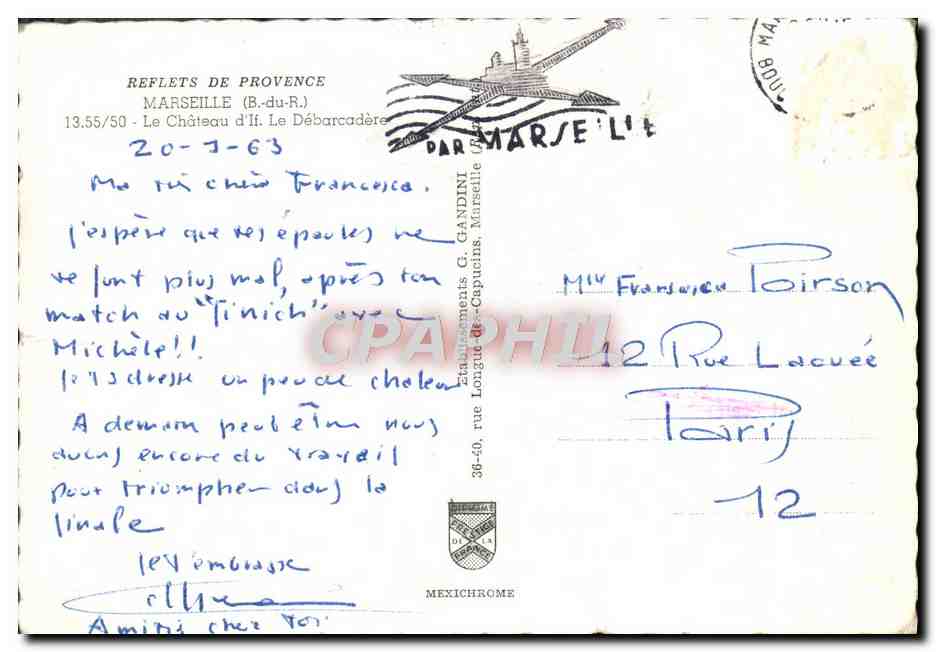 REFLETS DE PROVENCE
MARSEILLE (B.-du-R.)
13.55/50 - Le Château d'If. Le Débarcadère
20-3-63
Ma très chère Francesca.
j'espère que tes épaules ne
te font plus mal, après ton
match au "finich" avec
Michèle!!
Je t'adresse un peu de chaleur
A demain peut être nous
avons encore du travail
pour triompher dans la
finale
Je t'embrasse
Amitiés chez toi
PAR MARSEILLE
Etablissements G. GANDINI
36-40, rue Longue-des-Capucins, Marseille
DIPLOME
PRESTIGE
DE LA
FRANCE
MEXICHROME
CPAPHIL
Mlle Poirson
12 Rue Lacuée
Paris
12